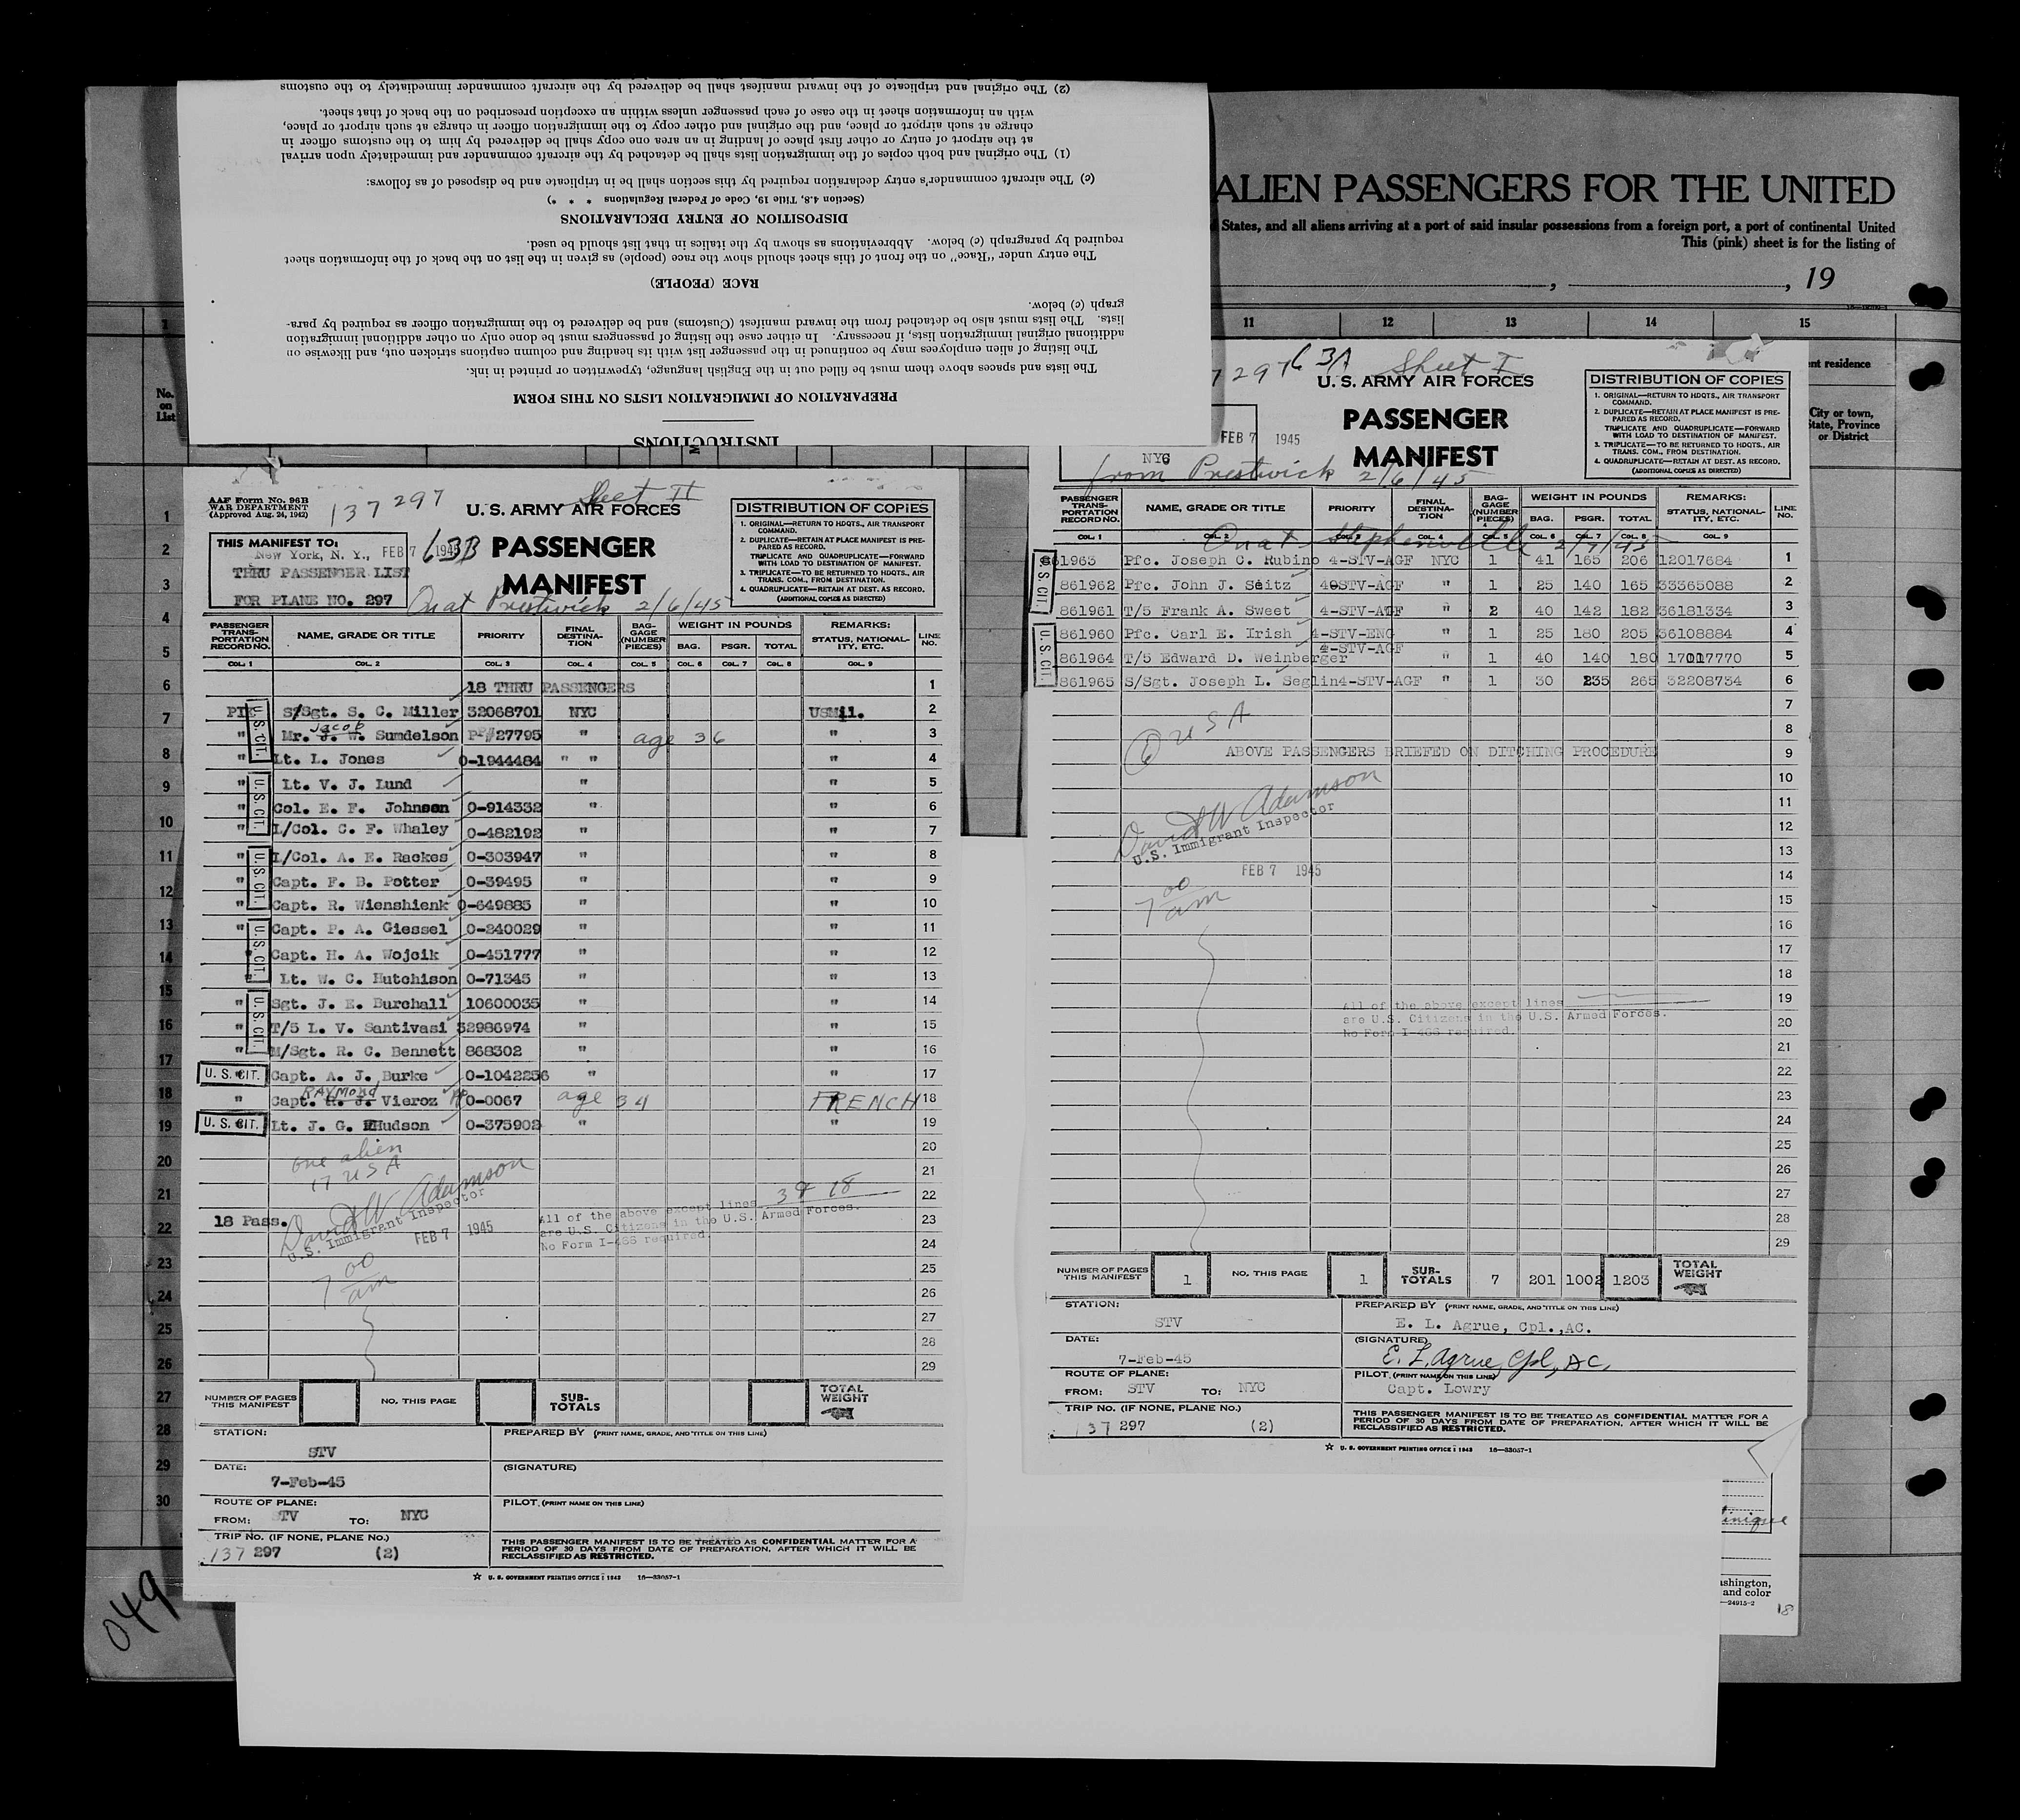 INSTRUCTIONS
PREPARATION OF IMMIGRATION LISTS ON THIS FORM
The lists and spaces above them must be filled out in the English language, typewritten or printed in ink.
The listing of alien employees may be continued in the passenger list with its heading and column captions stricken out, and likewise on
additional original immigration lists, if necessary. In either case the listing of passengers must be done only on other additional immigration
lists. The lists must also be detached from the inward manifest (Customs) and be delivered to the immigration officer as required by para-
graph (c) below.
RACE (PEOPLE)
The entry under "Race" on the front of this sheet should show the race (people) as given in the list on the back of the information sheet
required by paragraph (c) below. Abbreviations as shown by the italics in that list should be used.
DISPOSITION OF ENTRY DECLARATIONS
(Section 4.8, Title 19, Code of Federal Regulations * * *)
(c) The aircraft commander's entry declaration required by this section shall be in triplicate and be disposed of as follows:
(1) The original and both copies of the immigration lists shall be detached by the aircraft commander and immediately upon arrival
at the airport of entry or other first place of landing in an area one copy shall be delivered by him to the customs officer in
charge at such airport or place, and the original and other copy to the immigration officer in charge at such airport or place,
with an information sheet in the case of each passenger unless within an exception prescribed on the back of that sheet.
(2) The original and triplicate of the inward manifest shall be delivered by the aircraft commander immediately to the customs
ALIEN PASSENGERS FOR THE UNITED
States, and all aliens arriving at a port of said insular possessions from a foreign port, a port of continental United
This (pink) sheet is for the listing of
, , 19
11 12 13 14 15
No. on List
nt residence
City or town,
State, Province
or District
1
2
3
4
5
6
7
8
9
10
11
12
13
14
15
16
17
18
19
20
21
22
23
24
25
26
27
28
29
30
049
AAF Form No. 96B
WAR DEPARTMENT
(Approved Aug. 24, 1942)
137 297
Sheet II
U. S. ARMY AIR FORCES
PASSENGER
MANIFEST
THIS MANIFEST TO:
New York, N. Y., FEB 7 1945
63B
THRU PASSENGER LIST
FOR PLANE NO. 297
Out at Prestwick 2/6/45
DISTRIBUTION OF COPIES
1. ORIGINAL—RETURN TO HDQTS., AIR TRANSPORT
COMMAND.
2. DUPLICATE—RETAIN AT PLACE MANIFEST IS PRE-
PARED AS RECORD.
TRIPLICATE AND QUADRUPLICATE—FORWARD
WITH LOAD TO DESTINATION OF MANIFEST.
3. TRIPLICATE—TO BE RETURNED TO HDQTS., AIR
TRANS. COM., FROM DESTINATION.
4. QUADRUPLICATE—RETAIN AT DEST. AS RECORD.
(ADDITIONAL COPIES AS DIRECTED)
PASSENGER TRANS- PORTATION RECORD NO. NAME, GRADE OR TITLE PRIORITY FINAL DESTINA- TION BAG- GAGE (NUMBER PIECES) WEIGHT IN POUNDS BAG. PSGR. TOTAL REMARKS: STATUS, NATIONAL- ITY, ETC. LINE NO.
COL. 1 COL. 2 COL. 3 COL. 4 COL. 5 COL. 6 COL. 7 COL. 8 COL. 9
18 THRU PASSENGERS 1
PIK S/Sgt. S. C. Miller 32068701 NYC USMil. 2
" Mr. Jacob J. W. Sundelson PP#27795 " age 36 " 3
" Lt. L. Jones O-1944484 " " " 4
" Lt. V. J. Lund " " 5
" Col. E. F. Johnson O-914332 " " 6
" L/Col. C. F. Whaley O-482192 " " 7
" L/Col. A. E. Rackes O-303947 " " 8
" Capt. F. B. Potter O-39495 " " 9
" Capt. R. Wienshienk O-649885 " " 10
" Capt. P. A. Giessel O-240029 " " 11
" Capt. H. A. Wojcik O-451777 " " 12
" Lt. W. C. Hutchison O-71345 " " 13
" Sgt. J. E. Burchall 10600035 " " 14
" T/5 L. V. Santivasi 32986974 " " 15
" M/Sgt. R. C. Bennett 868302 " " 16
U. S. CIT. Capt. A. J. Burke O-1042256 " " 17
" Capt. RAYMOND R. J. Vieroz PP O-0067 age 34 FRENCH 18
U. S. CIT. Lt. J. G. Hudson O-375902 " " 19
U. S. CIT.
U. S. CIT.
U. S. CIT.
U. S. CIT.
U. S. CIT.
20
21
22
23
24
25
26
27
28
29
one alien
17 USA
18 Pass.
David W Adamson
U.S. Immigrant Inspector
FEB 7 1945
7 00 am
All of the above except lines 3 & 18
are U.S. Citizens in the U.S. Armed Forces.
No Form I-466 required.
NUMBER OF PAGES THIS MANIFEST NO. THIS PAGE SUB- TOTALS TOTAL WEIGHT
STATION: STV
PREPARED BY (PRINT NAME, GRADE, AND TITLE ON THIS LINE)
DATE: 7-Feb-45
(SIGNATURE)
ROUTE OF PLANE:
FROM: STV TO: NYC
PILOT (PRINT NAME ON THIS LINE)
TRIP NO. (IF NONE, PLANE NO.)
137 297 (2)
THIS PASSENGER MANIFEST IS TO BE TREATED AS CONFIDENTIAL MATTER FOR A
PERIOD OF 30 DAYS FROM DATE OF PREPARATION, AFTER WHICH IT WILL BE
RECLASSIFIED AS RESTRICTED.
☆ U. S. GOVERNMENT PRINTING OFFICE : 1943 16—33057-1
7 297 63A Sheet I
U. S. ARMY AIR FORCES
PASSENGER
MANIFEST
FEB 7 1945
NYC
from Prestwick 2/6/45
DISTRIBUTION OF COPIES
1. ORIGINAL—RETURN TO HDQTS., AIR TRANSPORT
COMMAND.
2. DUPLICATE—RETAIN AT PLACE MANIFEST IS PRE-
PARED AS RECORD.
TRIPLICATE AND QUADRUPLICATE—FORWARD
WITH LOAD TO DESTINATION OF MANIFEST.
3. TRIPLICATE—TO BE RETURNED TO HDQTS., AIR
TRANS. COM., FROM DESTINATION.
4. QUADRUPLICATE—RETAIN AT DEST. AS RECORD.
(ADDITIONAL COPIES AS DIRECTED)
PASSENGER TRANS- PORTATION RECORD NO. NAME, GRADE OR TITLE PRIORITY FINAL DESTINA- TION BAG- GAGE (NUMBER PIECES) WEIGHT IN POUNDS BAG. PSGR. TOTAL REMARKS: STATUS, NATIONAL- ITY, ETC. LINE NO.
COL. 1 COL. 2 COL. 3 COL. 4 COL. 5 COL. 6 COL. 7 COL. 8 COL. 9
Out at Stephenville 2/7/45
861963 Pfc. Joseph C. Rubino 4-STV-AGF NYC 1 41 165 206 12017684 1
861962 Pfc. John J. Seitz 4-STV-AGF " 1 25 140 165 33365088 2
861961 T/5 Frank A. Sweet 4-STV-AGF " 2 40 142 182 36181334 3
861960 Pfc. Carl E. Irish 4-STV-ENG " 1 25 180 205 36108884 4
861964 T/5 Edward D. Weinberger 4-STV-AGF " 1 40 140 180 17017770 5
861965 S/Sgt. Joseph L. Seglin 4-STV-AGF " 1 30 235 265 32208734 6
U. S. CIT.
U. S. CIT.
7
8
9
10
11
12
13
14
15
16
17
18
19
20
21
22
23
24
25
26
27
28
29
6 USA
ABOVE PASSENGERS BRIEFED ON DITCHING PROCEDURE
David W Adamson
U.S. Immigrant Inspector
FEB 7 1945
7 00 am
All of the above except lines
are U.S. Citizens in the U.S. Armed Forces.
No Form I-466 required.
NUMBER OF PAGES THIS MANIFEST 1 NO. THIS PAGE 1 SUB- TOTALS 7 201 1002 1203 TOTAL WEIGHT
STATION: STV
PREPARED BY (PRINT NAME, GRADE, AND TITLE ON THIS LINE)
E. L. Agrue, Cpl.,AC.
DATE: 7-Feb-45
(SIGNATURE)
E. L. Agrue, Cpl, AC,
ROUTE OF PLANE:
FROM: STV TO: NYC
PILOT (PRINT NAME ON THIS LINE)
Capt. Lowry
TRIP NO. (IF NONE, PLANE NO.)
137 297 (2)
THIS PASSENGER MANIFEST IS TO BE TREATED AS CONFIDENTIAL MATTER FOR A
PERIOD OF 30 DAYS FROM DATE OF PREPARATION, AFTER WHICH IT WILL BE
RECLASSIFIED AS RESTRICTED.
☆ U. S. GOVERNMENT PRINTING OFFICE : 1943 16—33057-1
inique
ashington,
and color
—24915-2
18